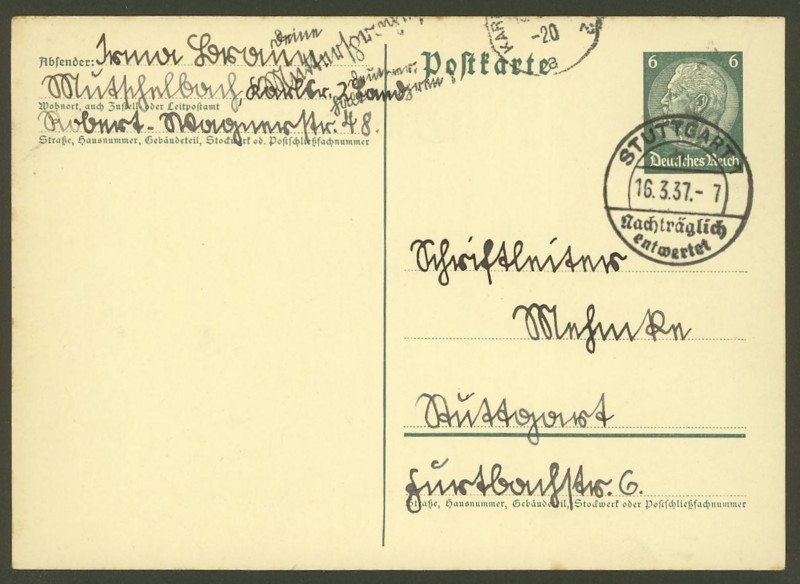 Absender: Irma Braun
Mutschelbach, Karlsr. 2 Land
Wohnort, auch Zustell- oder Leitpostamt
Robert-Wagnerstr. 48.
Straße, Hausnummer, Gebäudeteil, Stockwerk od. Postschließfachnummer
Deine
KAR
-20
a
Postkarte
6 6
Deutsches Reich
STUTTGART
16.3.37.-7
Nachträglich
entwertet
Schriftleiter
Mehmke
Stuttgart
Furtbachstr. 6.
Straße, Hausnummer, Gebäudeteil, Stockwerk oder Postschließfachnummer